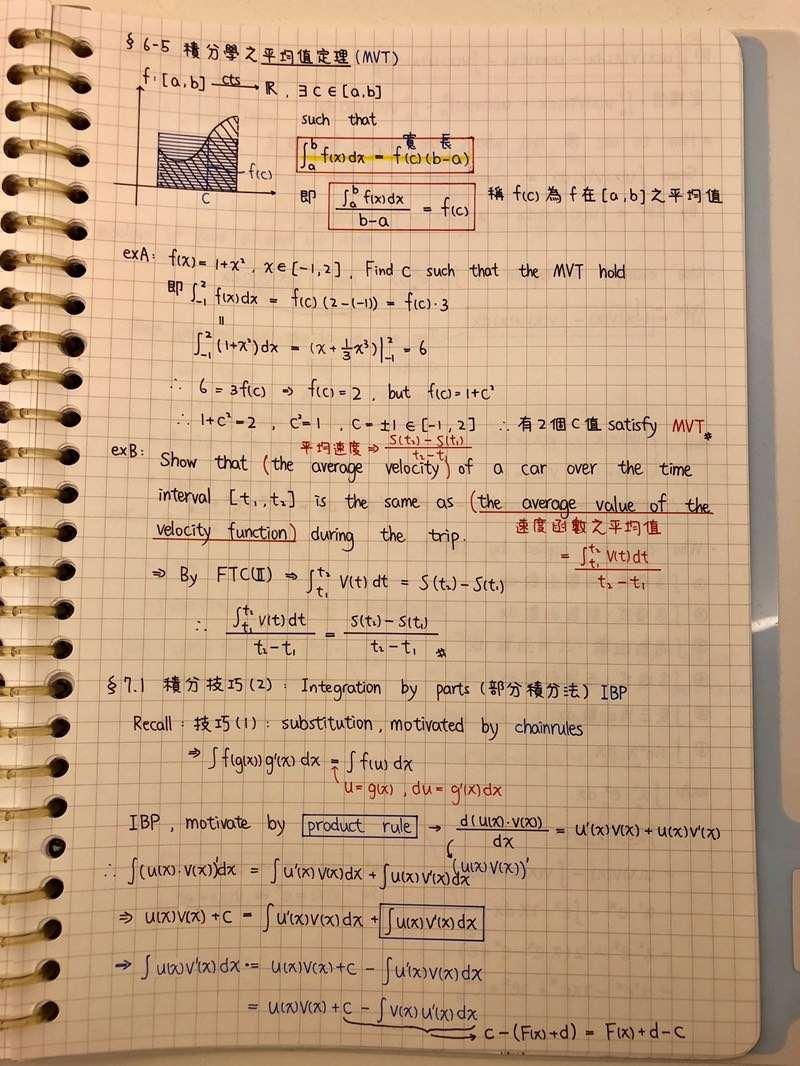 § 6-5 積分學之平均值定理 (MVT)
f: [a,b] cts→ ℝ, ∃ c ∈ [a,b]
such that
寬 長
∫ₐᵇ f(x) dx = f(c) (b-a)
f(c)
c
即 ∫ₐᵇ f(x) dx / b-a = f(c) 稱 f(c) 為 f 在 [a,b] 之平均值
exA: f(x) = 1+x², x ∈ [-1,2], Find C such that the MVT hold
即 ∫₋₁² f(x) dx = f(c) (2-(-1)) = f(c)·3
||
∫₋₁² (1+x²) dx = (x + 1/3 x³)|₋₁² = 6
∴ 6 = 3f(c) ⇒ f(c) = 2, but f(c) = 1+c²
∴ 1+c² = 2, c² = 1, c = ±1 ∈ [-1,2] ∴ 有2個C值 satisfy MVT
平均速度 ⇒ S(t₂) - S(t₁) / t₂ - t₁
exB: Show that (the average velocity) of a car over the time
interval [t₁, t₂] is the same as (the average value of the
velocity function) during the trip.
速度函數之平均值
= ∫ₜ₁ᵗ² V(t) dt / t₂ - t₁
⇒ By FTC(Ⅱ) ⇒ ∫ₜ₁ᵗ² V(t) dt = S(t₂) - S(t₁)
∴ ∫ₜ₁ᵗ² V(t) dt / t₂ - t₁ = S(t₂) - S(t₁) / t₂ - t₁
§ 7.1 積分技巧(2): Integration by parts (部分積分法) IBP
Recall: 技巧(1): substitution, motivated by chainrules
⇒ ∫ f(g(x)) g'(x) dx = ∫ f(u) dx
u = g(x), du = g'(x) dx
IBP, motivate by product rule → d(u(x)·v(x)) / dx = u'(x)v(x) + u(x)v'(x)
(u(x)v(x))'
∴ ∫ (u(x)·v(x))' dx = ∫ u'(x) v(x) dx + ∫ u(x) v'(x) dx
⇒ u(x)v(x) + C = ∫ u'(x) v(x) dx + ∫ u(x) v'(x) dx
⇒ ∫ u(x) v'(x) dx = u(x)v(x) + C - ∫ u'(x) v(x) dx
= u(x)v(x) + C - ∫ v(x) u'(x) dx
→ C - (F(x) + d) = F(x) + d - C